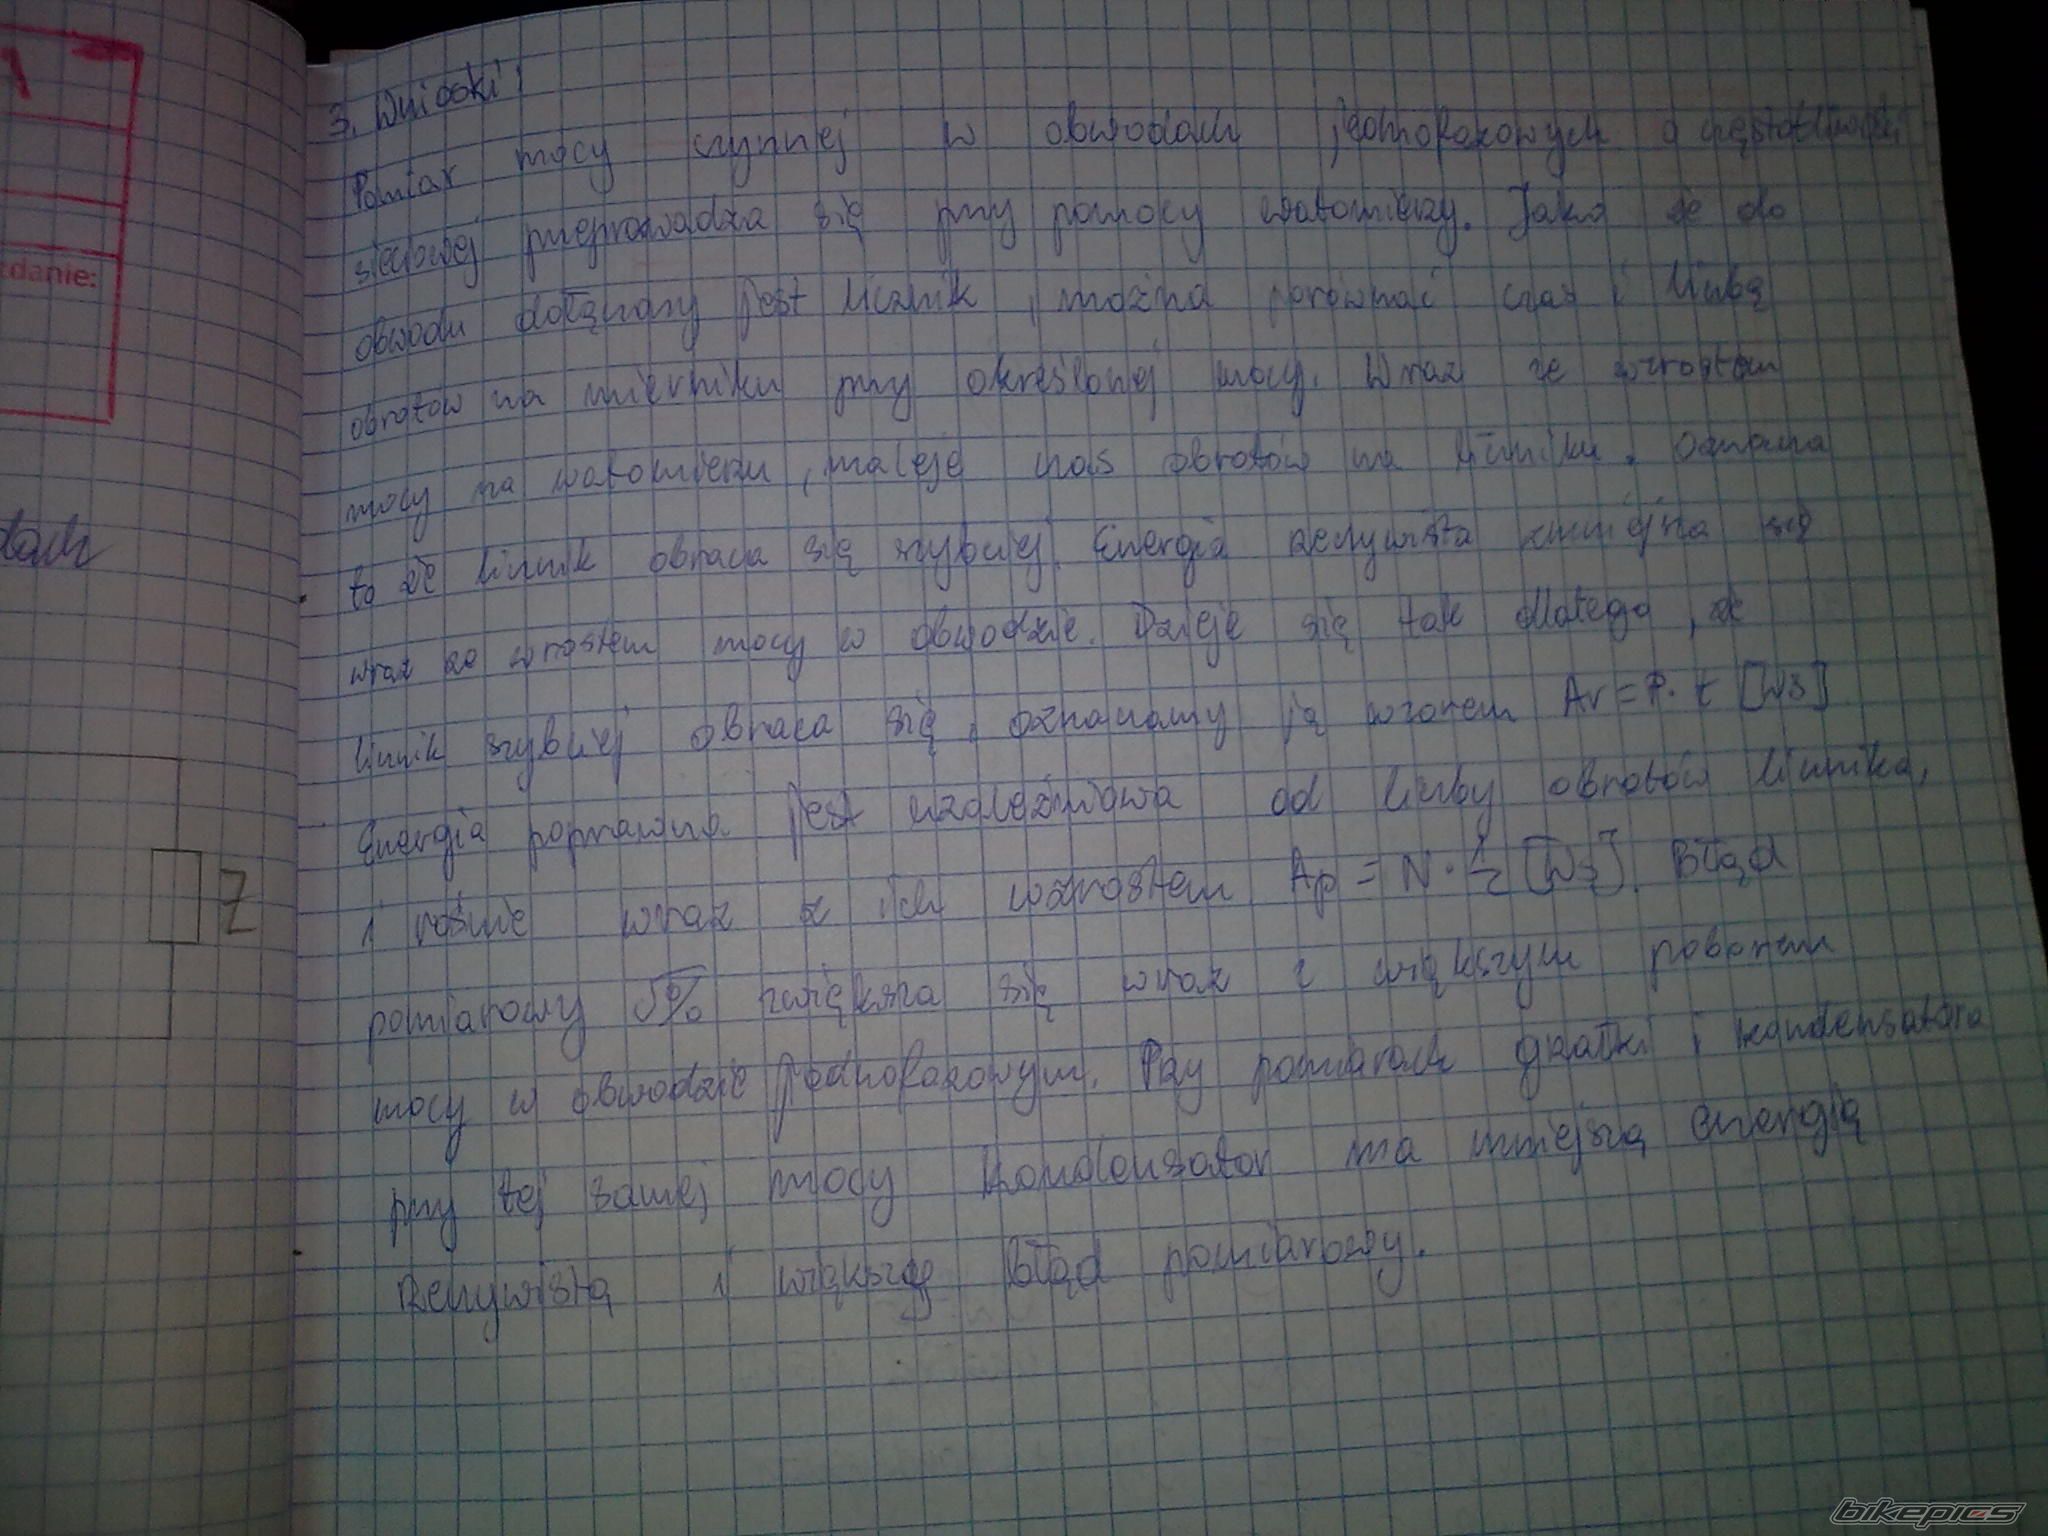 1
zdanie:
dach
Z
3. Wnioski:
Pomiar mocy czynnej w obwodach jednofazowych o częstotliwości
sieciowej przeprowadza się przy pomocy watomierzy. Jako że do
obwodu dołączony jest licznik, można porównać czas i liczbę
obrotów na mierniku przy określonej mocy. Wraz ze wzrostem
mocy na watomierzu, maleje czas obrotów na liczniku. Oznacza
to że licznik obraca się szybciej. Energia rzeczywista zmniejsza się
wraz ze wzrostem mocy w obwodzie. Dzieje się tak dlatego, że
licznik szybciej obraca się, oznaczamy ją wzorem Ar = P · t [Ws]
Energia poprawna jest uzależniona od liczby obrotów licznika,
i rośnie wraz z ich wzrostem Ap = N · [Ws]. Błąd
pomiarowy δ% zwiększa się wraz z większym poborem
mocy w obwodzie jednofazowym. Przy pomiarach grzałki i kondensatora
przy tej samej mocy kondensator ma mniejszą energię
rzeczywistą i większy błąd pomiarowy.
bikepics